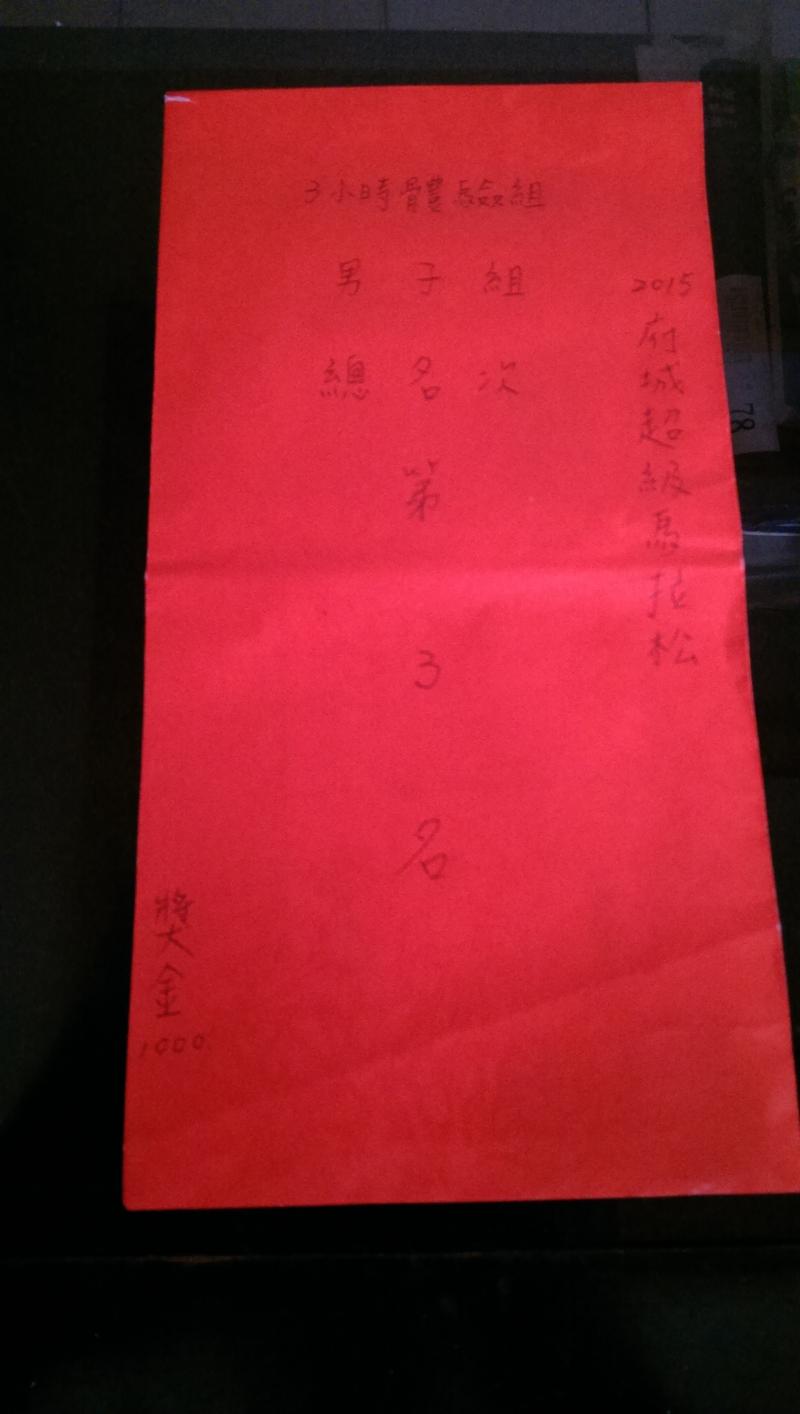 2015府城超級馬拉松
3小時體驗組
男子組
總名次
第
3
名
獎金
1000
78